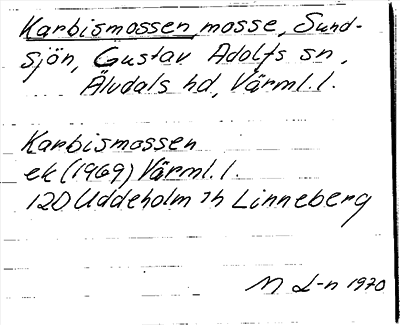 Karbismossen, mosse, Sund-
sjön, Gustav Adolfs sn,
Älvdals hd, Värml. l.
Karbismossen
ek (1969) Värml. l.
12D Uddeholm Linneberg
M L-n 1970